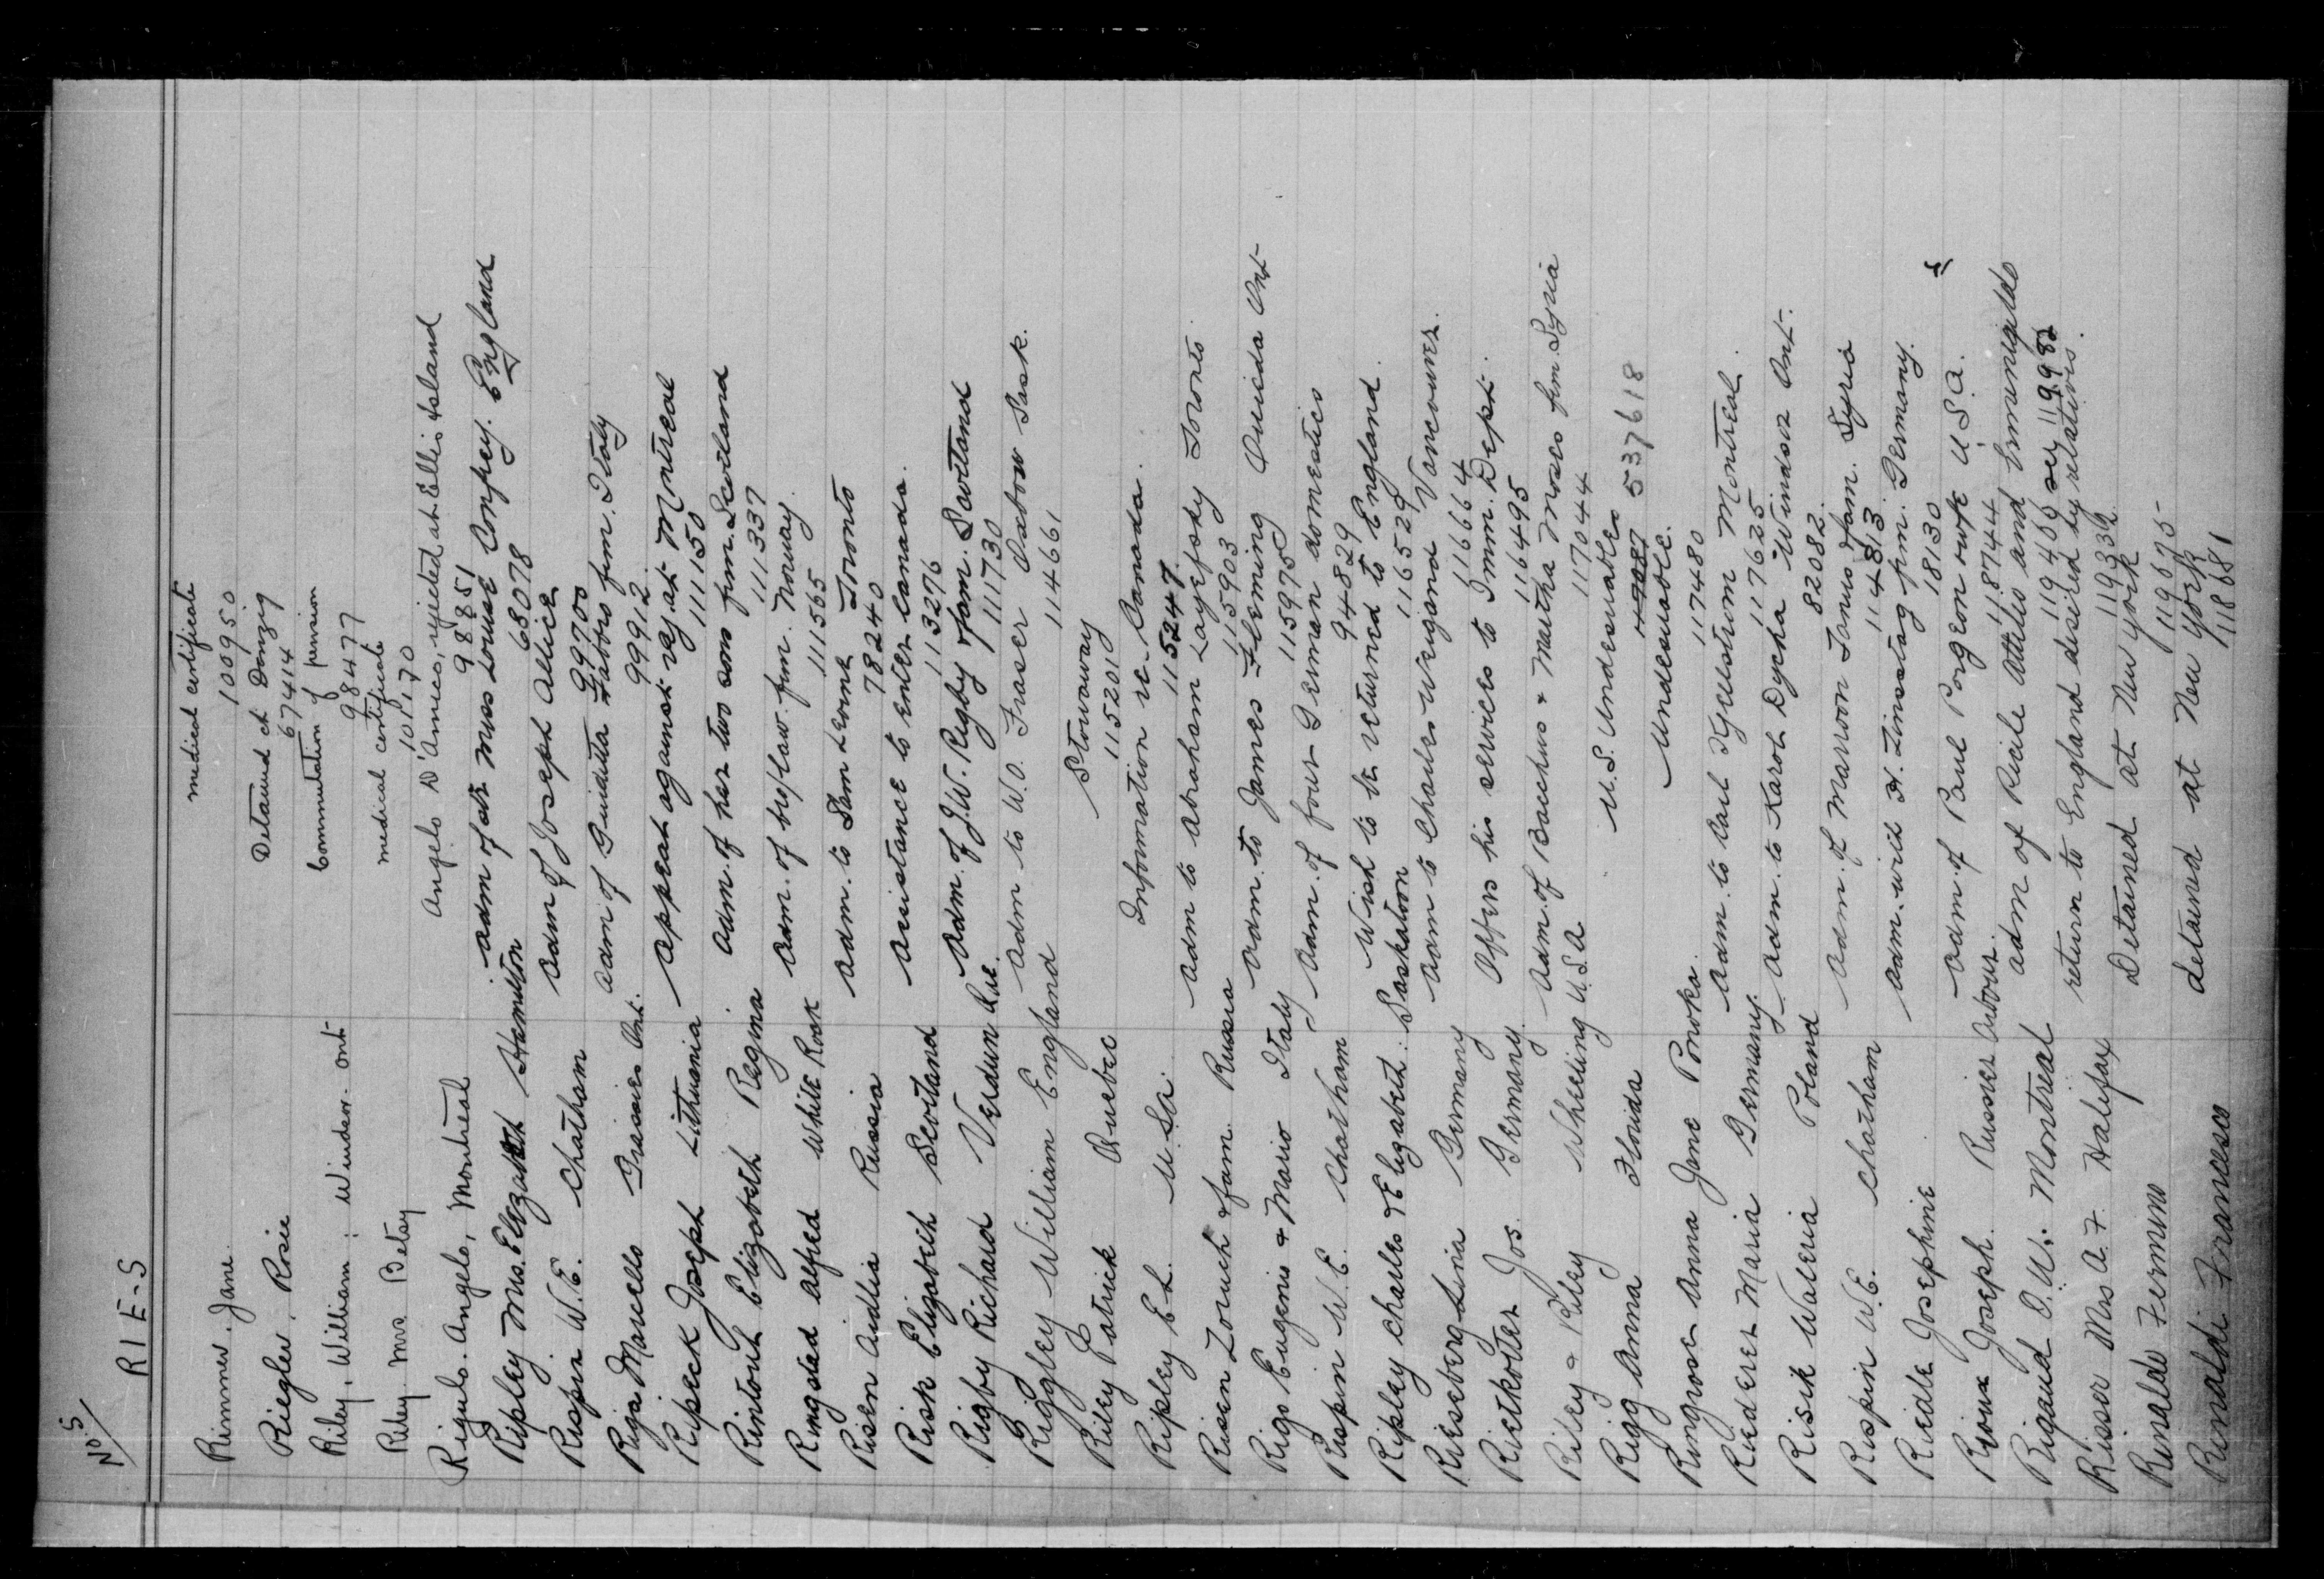 No. 5
RIE-S
Rimmer. Jane. medical certificate
100950
Riegler. Rosie Detained at Danzig
67414
Riley. William; Windsor. Ont Commutation of pension
98477
Riley. Mrs Betsy medical certificate
101170
Rigulo. Angelo, Montreal Angelo D'Amico, rejected at Ellis Island
98851
Ripley Mrs. Elizabeth Hamilton adm of Miss Louise Compey. England
68078
Rispin W.E. Chatham adm of Joseph Allice
99700
Riga Marcello Grassies Ont. adm of Guiditta Fabbro fum. Italy
99912
Ripeck Joseph Lithuania appeal against rej. at Montreal
111150
Rintoul Elizabeth Regina adm. of her two sons fum. Scotland
111337
Ringstad Alfred White Rock adm. of bro/law. fum. Norway.
111565
Risen Audlia Russia adm. to Sam Leorne Toronto
78240
Risk Elizabeth Scotland assistance to enter Canada.
113276
Rigby Richard Verdun Que. adm. of J.W. Rigby & fam. Scotland
111730
Riggley William England adm to W.O. Fraser Oxbow Sask.
114661
Riley Patrick Quebec Stowaway
115201
Ripley E.L. U.S.A. Information re Canada.
115247
Risen Zoruch & fam. Russia adm to Abraham Toronto
115903
Rigo Eugenio & Mario Italy adm. to James Fleming Ont
115975
Rispin W.E. Chatham adm. of four German domestics
94829
Ripley Charles & Elizabeth: Saskatoon Wish to be returned to England.
116529
Rieseberg Lina Germany adm to Charles Wiegand Vancouver.
116664
Rietkotter Jos. Germany. Offers his services to Imm. Dept.
116495
Riley & Riley Wheeling U.S.A adm. of Bacchus & Martha Moses fum. Syria
117044
Rigg Anna Florida U.S. Undesirables
47087 537618
Ringrose Anna Jane Ponoka. Undesirable.
117480
Riederer Maria Germany. adm. to Carl Montreal.
117625
Risik Waleria Poland adm. to Karol Dycha Windsor Ont.
82082
Rispin W.E. Chatham adm. of Marroon Tanus & fam. Syria
114813
Riedle Josephine adm. wild H. Zinstag fum. Germany.
18130
Rioux Joseph. Russier Arbour. adm. of Paul Porgeon wife U.S.A.
118744
Rigaud D.U. Montreal adm of Ricile Attilio and
119400 sey 119982
Riser Mrs A.F. Halifax return to England desired by relatives.
119332
Rinaldo Fermino Detained at New York
119675
Rinaldi Francesco detained at New York
118681